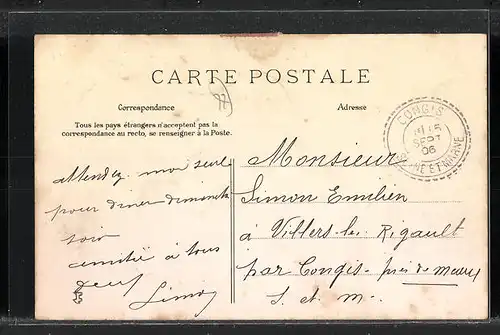 CARTE POSTALE
77
Correspondance
Adresse
Tous les pays étrangers n'acceptent pas la
correspondance au recto, se renseigner à la Poste.
CONGIS
15
SEPT
06
SEINE ET MARNE
attendez moi
pour diner dimanche
soir
amitié à tous
Simon
Monsieur
Simon Emilien
à Villers-les Rigault
par Congis- près de Meaux
S. et M.